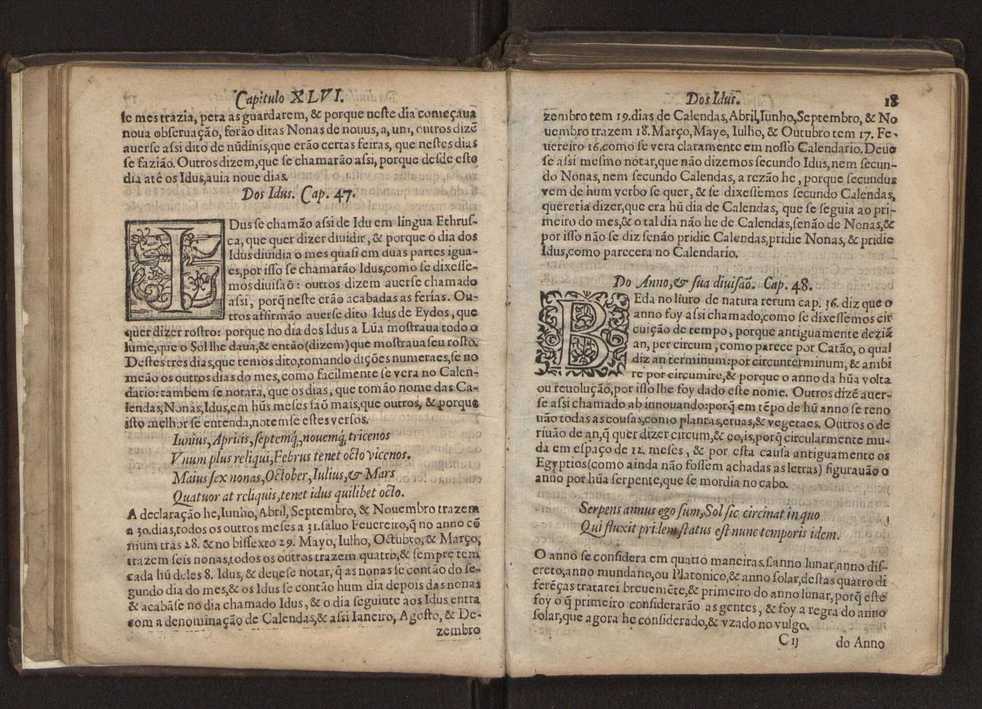 Capitulo XLVI.
le mes trazia, pera as guardarem, & porque neste dia começaua
noua obseruação, forão ditas Nonas de nouus, a, um, outros dizẽ
auerse assi dito de nũdinis, que erão certas feiras, que nestes dias
se fazião. Outros dizem, que se chamarão assi, porque desde esto
dia até os Idus, auia noue dias.
Dos Idus. Cap. 47.
IDus se chamão assi de Idu em lingua Ethrus-
ca, que quer dizer diuidir, & porque o dia dos
Idus diuidia o mes quasi em duas partes igua-
es, por isso se chamarão Idus, como se dixesse-
mos diuisaõ: outros dizem auerse chamado
assi, porq̃ neste erão acabadas as ferias. Ou-
tros affirmão auerse dito Idus de Eydos, que
quer dizer rostro: porque no dia dos Idus a Lũa mostraua todo o
lume, que o Sol lhe daua, & então (dizem) que mostraua seu rosto.
Destes tres dias, que temos dito, tomando dições numeraes, se no
meão os outros dias do mes, como facilmente se vera no Calen-
dario: tambem se notara, que os dias, que tomão nome das Ca-
lendas, Nonas, Idus, em hũs meses saõ mais, que outros, & porque
isto melhor se entenda, notemse estes versos.
Iunius, Aprilis, septemq́, nouemq́, tricenos
Vnum plus reliqui, Februs tenet octo vicenos.
Maius sex nonas, October, Iulius, & Mars
Quatuor at reliquis, tenet idus quilibet octo.
A declaração he, Iunho, Abril, Septembro, & Nouembro trazem
a 30. dias, todos os outros meses a 31. saluo Feuereiro, q̃ no anno cõ
mum tràs 28. & no bissexto 29. Mayo, Iulho, Octubro, & Março,
trazem seis nonas, todos os outros trazem quatro, & sempre tem
cada hũ deles 8. Idus, & deuese notar, q̃ as nonas se contão do se-
gundo dia do mes, & os Idus se contão hum dia depois das nonas
& acabãse no dia chamado Idus, & o dia seguiute aos Idus entra
com a denominação de Calendas, & assi Ianeiro, Agosto, & De-
zembro
Dos Idus.
18
zembro tem 19. dias de Calendas, Abril, Iunho, Septembro, & No
uembro trazem 18. Março, Mayo, Iulho, & Outubro tem 17. Fe-
uereiro 16. como se vera claramente em nosso Calendario. Deue
se assi mesmo notar, que não dizemos secundo Idus, nem secun-
do Nonas, nem secundo Calendas, a rezão he, porque secundus
vem de hum verbo se quer, & se dixessemos secundo Calendas,
quereria dizer, que era hũ dia de Calendas, que se seguia ao pri-
meiro do mes, & o tal dia não he de Calendas, senão de Nonas, &
por isso não se diz senão pridie Calendas, pridie Nonas, & pridie
Idus, como parecera no Calendario.
Do Anno, & sua diuisaõ. Cap. 48.
BEda no liuro de natura rerum cap. 36. diz que o
anno foy assi chamado, como se dixessemos cir
cuição de tempo, porque antiguamente deziã
an, per circum, como parece por Catão, o qual
diz an terminum: por circunterminum, & ambi
re por circumire, & porque o anno da hũa volta
ou reuolução, por isso lhe foy dado este nome. Outros dizẽ auer-
se assi chamado ab innouando: porq̃ em tẽpo de hũ anno se reno
uão todas as cousas, como plantas, eruas, & vegetaes. Outros o de
riuão de an, q̃ quer dizer circum, & eo, is, porq̃ circularmente mu-
da em espaço de 12. meses, & por esta causa antiguamente os
Egyptios (como ainda não fossem achadas as letras) figurauão o
anno por hũa serpente, que se mordia no cabo.
Serpens annus ego sum, Sol sic circinat in quo
Qui fluxit pridem, status est nunc temporis idem.
O anno se considera em quatro maneiras, s. anno lunar, anno dis-
creto, anno mundano, ou Platonico, & anno solar, destas quatro di
ferẽças tratarei breuemẽte, & primeiro do anno lunar, porq̃ este
foy o q̃ primeiro considerarão as gentes, & foy a regra do anno
solar, que agora he considerado, & vzado no vulgo.
C ij
do Anno